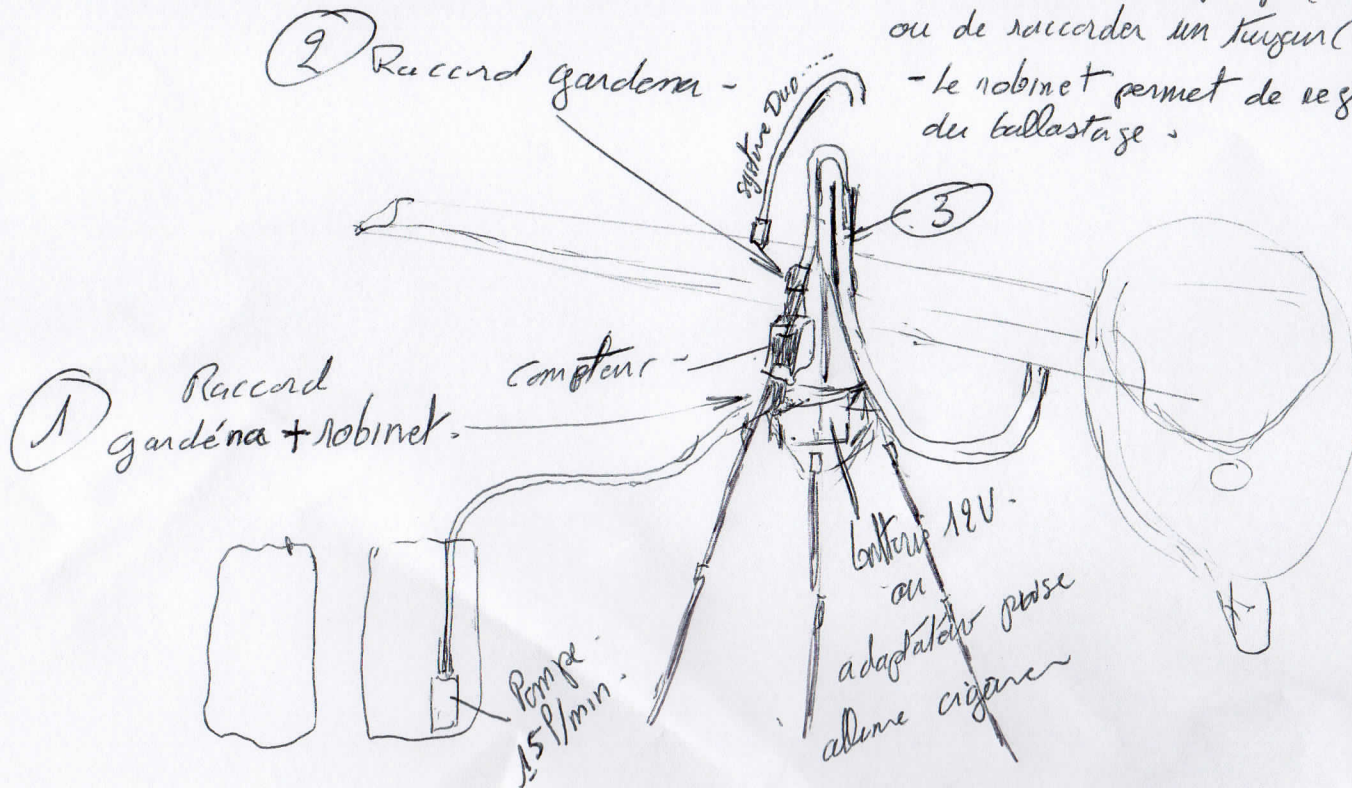 ou de raccorder un tuyau (
② Raccord gardena -
- Le robinet permet de reg
du ballastage.
système Duo....
3
compteur -
① Raccord
gardéna + robinet.
batterie 12V.
ou
adaptateur prise
allume cigare
Pompe
15 l/min.